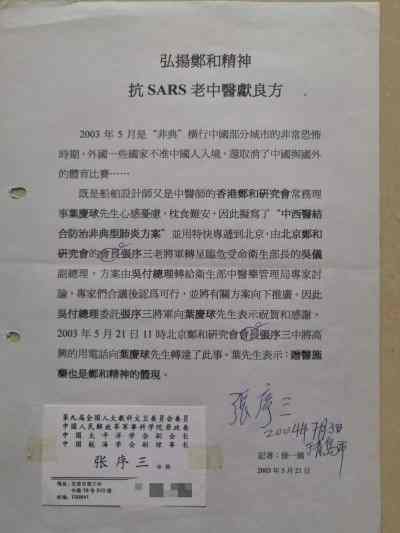 弘揚鄭和精神
抗 SARS 老中醫獻良方
2003 年 5 月是“非典”橫行中國部分城市的非常恐怖
時期，外國一些國家不准中國人入境，還取消了中國與國外
的體育比賽……
既是船舶設計師又是中醫師的香港鄭和研究會常務理
事葉慶球先生心感憂慮，枕食難安，因此擬寫了“中西醫結
合防治非典型肺炎方案”並用特快專遞到北京，由北京鄭和
研究會的會長張序三老將軍轉呈臨危受命衛生部長的吳儀
副總理，方案由吳付總理轉給衛生部中醫藥管理局專家討
論，專家們合議後認爲可行，並將有關方案向下推廣。因此
吳付總理委託張序三將軍向葉慶球先生表示祝賀和感謝，
2003 年 5 月 21 日 11 時北京鄭和研究會會長張序三中將高
興的用電話向葉慶球先生轉達了此事。葉先生表示：贈醫施
藥也是鄭和精神的體現。
張序三
2004年7月3日
于青島
記者：徐一
2003 年 5 月 21 日
第九屆全国人大教科文卫委员会委员
中国人民解放军军事科学院原政委
中国太平洋学会副会长
中国航海学会副理事长
张序三 中将